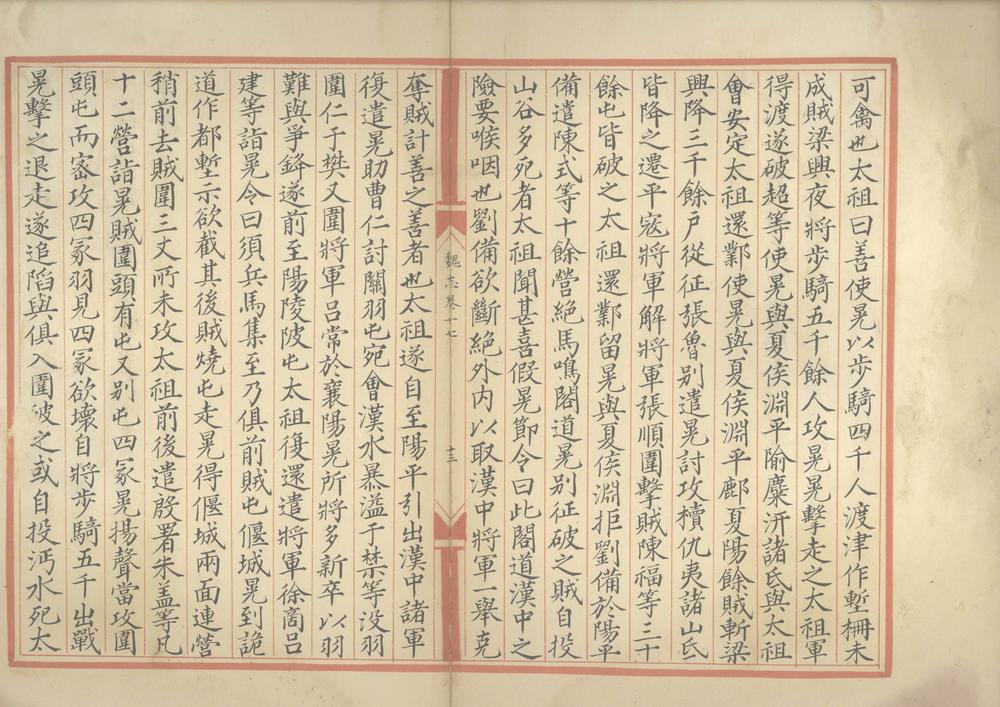 可禽也太祖曰善使晃以步騎四千人渡津作塹柵未
成賊梁興夜將步騎五千餘人攻晃晃擊走之太祖軍
得渡遂破超等使晃與夏侯淵平隃麋汧諸氐與太祖
會安定太祖還鄴使晃與夏侯淵平鄜夏陽餘賊斬梁
興降三千餘戶從征張魯別遣晃討攻櫝仇夷諸山氐
皆降之遷平寇將軍解將軍張順圍擊賊陳福等三十
餘屯皆破之太祖還鄴留晃與夏侯淵拒劉備於陽平
備遣陳式等十餘營絕馬鳴閣道晃別征破之賊自投
山谷多死者太祖聞甚喜假晃節令曰此閣道漢中之
險要喉咽也劉備欲斷絕外內以取漢中將軍一舉克
魏志卷十七
十三
奪賊計善之善者也太祖遂自至陽平引出漢中諸軍
復遣晃助曹仁討關羽屯宛會漢水暴溢于禁等沒羽
圍仁于樊又圍將軍呂常於襄陽晃所將多新卒以羽
難與爭鋒遂前至陽陵陂屯太祖復還遣將軍徐商呂
建等詣晃令曰須兵馬集至乃俱前賊屯偃城晃到詭
道作都塹示欲截其後賊燒屯走晃得偃城兩面連營
稍前去賊圍三丈所未攻太祖前後遣殷署朱蓋等凡
十二營詣晃賊圍頭有屯又別屯四冢晃揚聲當攻圍
頭屯而密攻四冢羽見四冢欲壞自將步騎五千出戰
晃擊之退走遂追陷與俱入圍破之或自投沔水死太